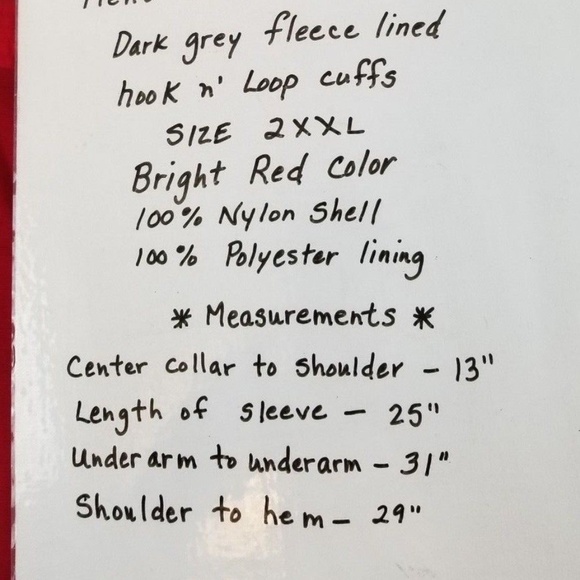 Dark grey fleece lined
hook n' Loop cuffs
SIZE 2XXL
Bright Red Color
100% Nylon Shell
100% Polyester lining
* Measurements *
Center collar to shoulder - 13"
Length of sleeve - 25"
Underarm to underarm - 31"
Shoulder to hem - 29"